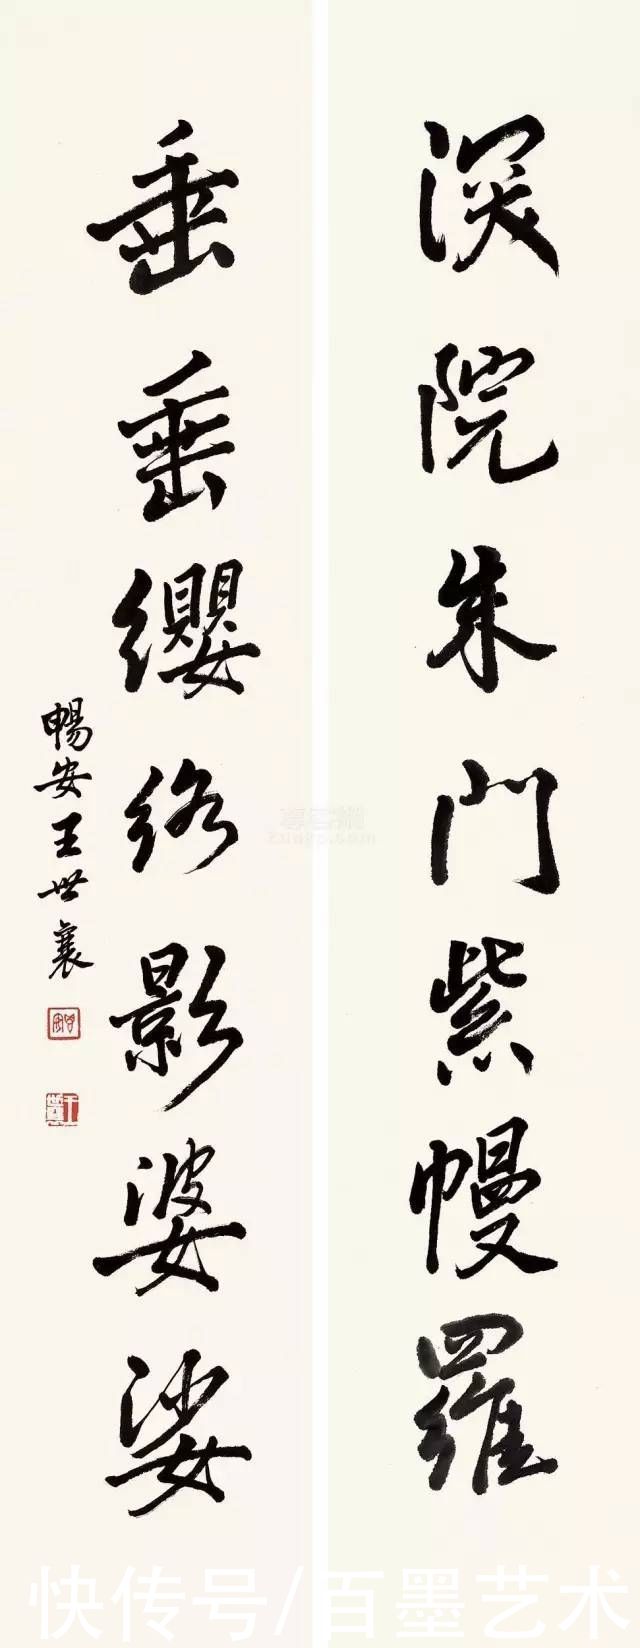 深院朱門紫幔羅
垂垂纓絡影婆娑
暢安王世襄
快传号/百墨艺术